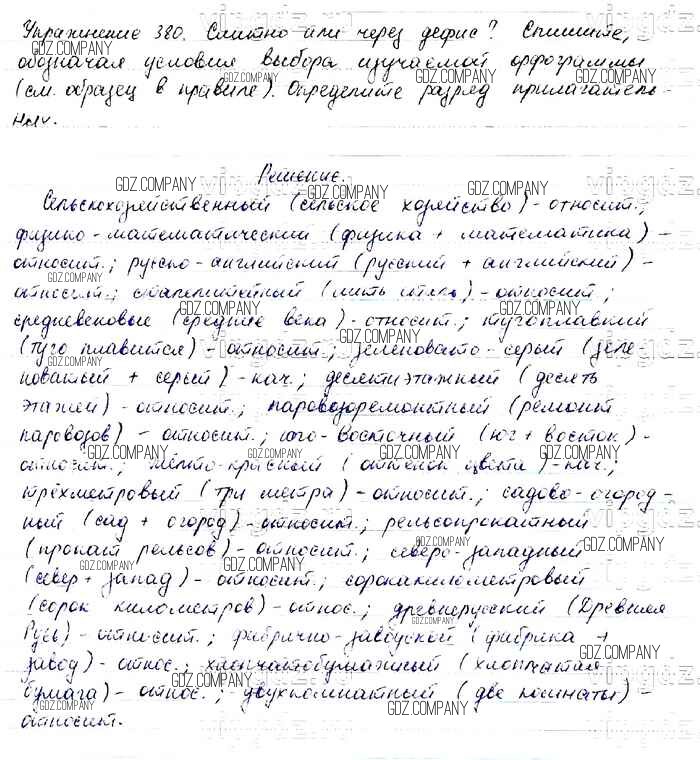 Упражнение 380. Слитно или через дефис? Спишите,
обозначая условия выбора изучаемой орфограммы
(см. образец в правиле). Определите разряд прилагатель-
ных.
Решение.
Сельскохозяйственный (сельское хозяйство) - относит.;
физико-математический (физика + математика) -
относит.; русско-английский (русский + английский) -
относит.; (лить) - относит.;
средневековые (средние века) - относит.; тугоплавкий
(туго плавится) - относит.; зеленовато-серый (зеле
новатый + серый) - кач.; десятиэтажный (десять
этажей) - относит.; паровозоремонтный (ремонт
паровозов) - относит.; юго-восточный (юг + восток) -
относит.; жёлто-красный (оттенок цвета) - кач.;
трёхметровый (три метра) - относит.; садово-огород-
ный (сад + огород) - относит.; рельсопрокатный
(прокат рельсов) - относит.; северо-западный
(север + запад) - относит.; сорокакилометровый
(сорок километров) - относ.; древнерусский (Древняя
Русь) - относит.; фабрично-заводской (фабрика +
завод) - относ.; хлопчатобумажный (хлопчатая
бумага) - относ.; двухкомнатный (две комнаты) -
относит.